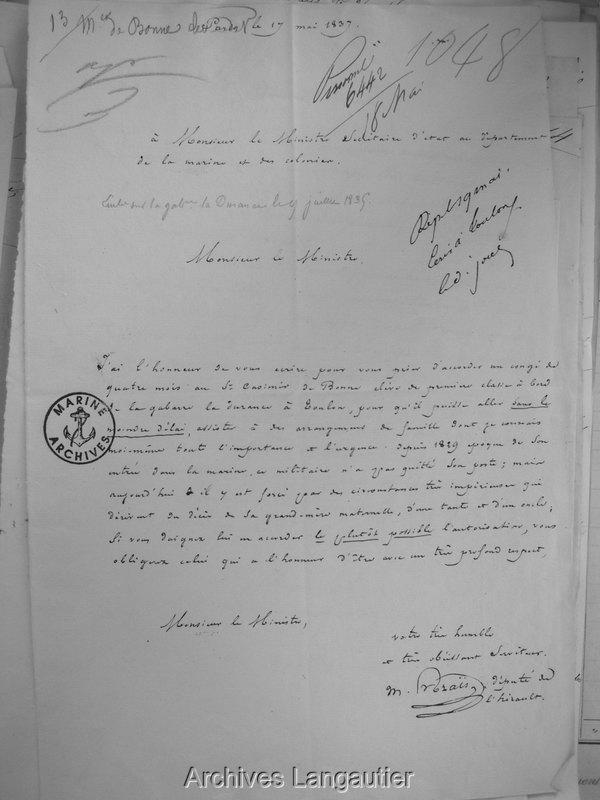 13 Mr de Bonne
le 17 mai 1837.
Personnel
6442
18 Mai
1048
à Monsieur le Ministre Secrétaire d'état au département
de la marine et des colonies.
sur la gabre la Durance le 9 juillet 1835
Monsieur le Ministre,
J'ai l'honneur de vous écrire pour vous prier d'accorder un congé de
quatre mois au St Casimir de Bonne élève de première classe à bord
de la gabare la Durance à Toulon, pour qu'il puisse aller sans le
moindre délai, assister à des arrangemens de famille dont je connais
moi-même toute l'importance et l'urgence. depuis 1829 époque de son
entrée dans la marine, ce militaire n'a pas quitté son poste; mais
aujourd'hui il y est forcé par des circonstances très impérieuses qui
dérivent du décès de sa grand-mère maternelle, d'une tante et d'un oncle;
Si vous daignez lui en accorder le plutôt possible l'autorisation, vous
obligerez celui qui a l'honneur d'être avec un très profond respect,
Monsieur le Ministre,
votre très humble
et très obéissant Serviteur.
M. député de
l'hérault.
MARINE ARCHIVES
Archives Langautier